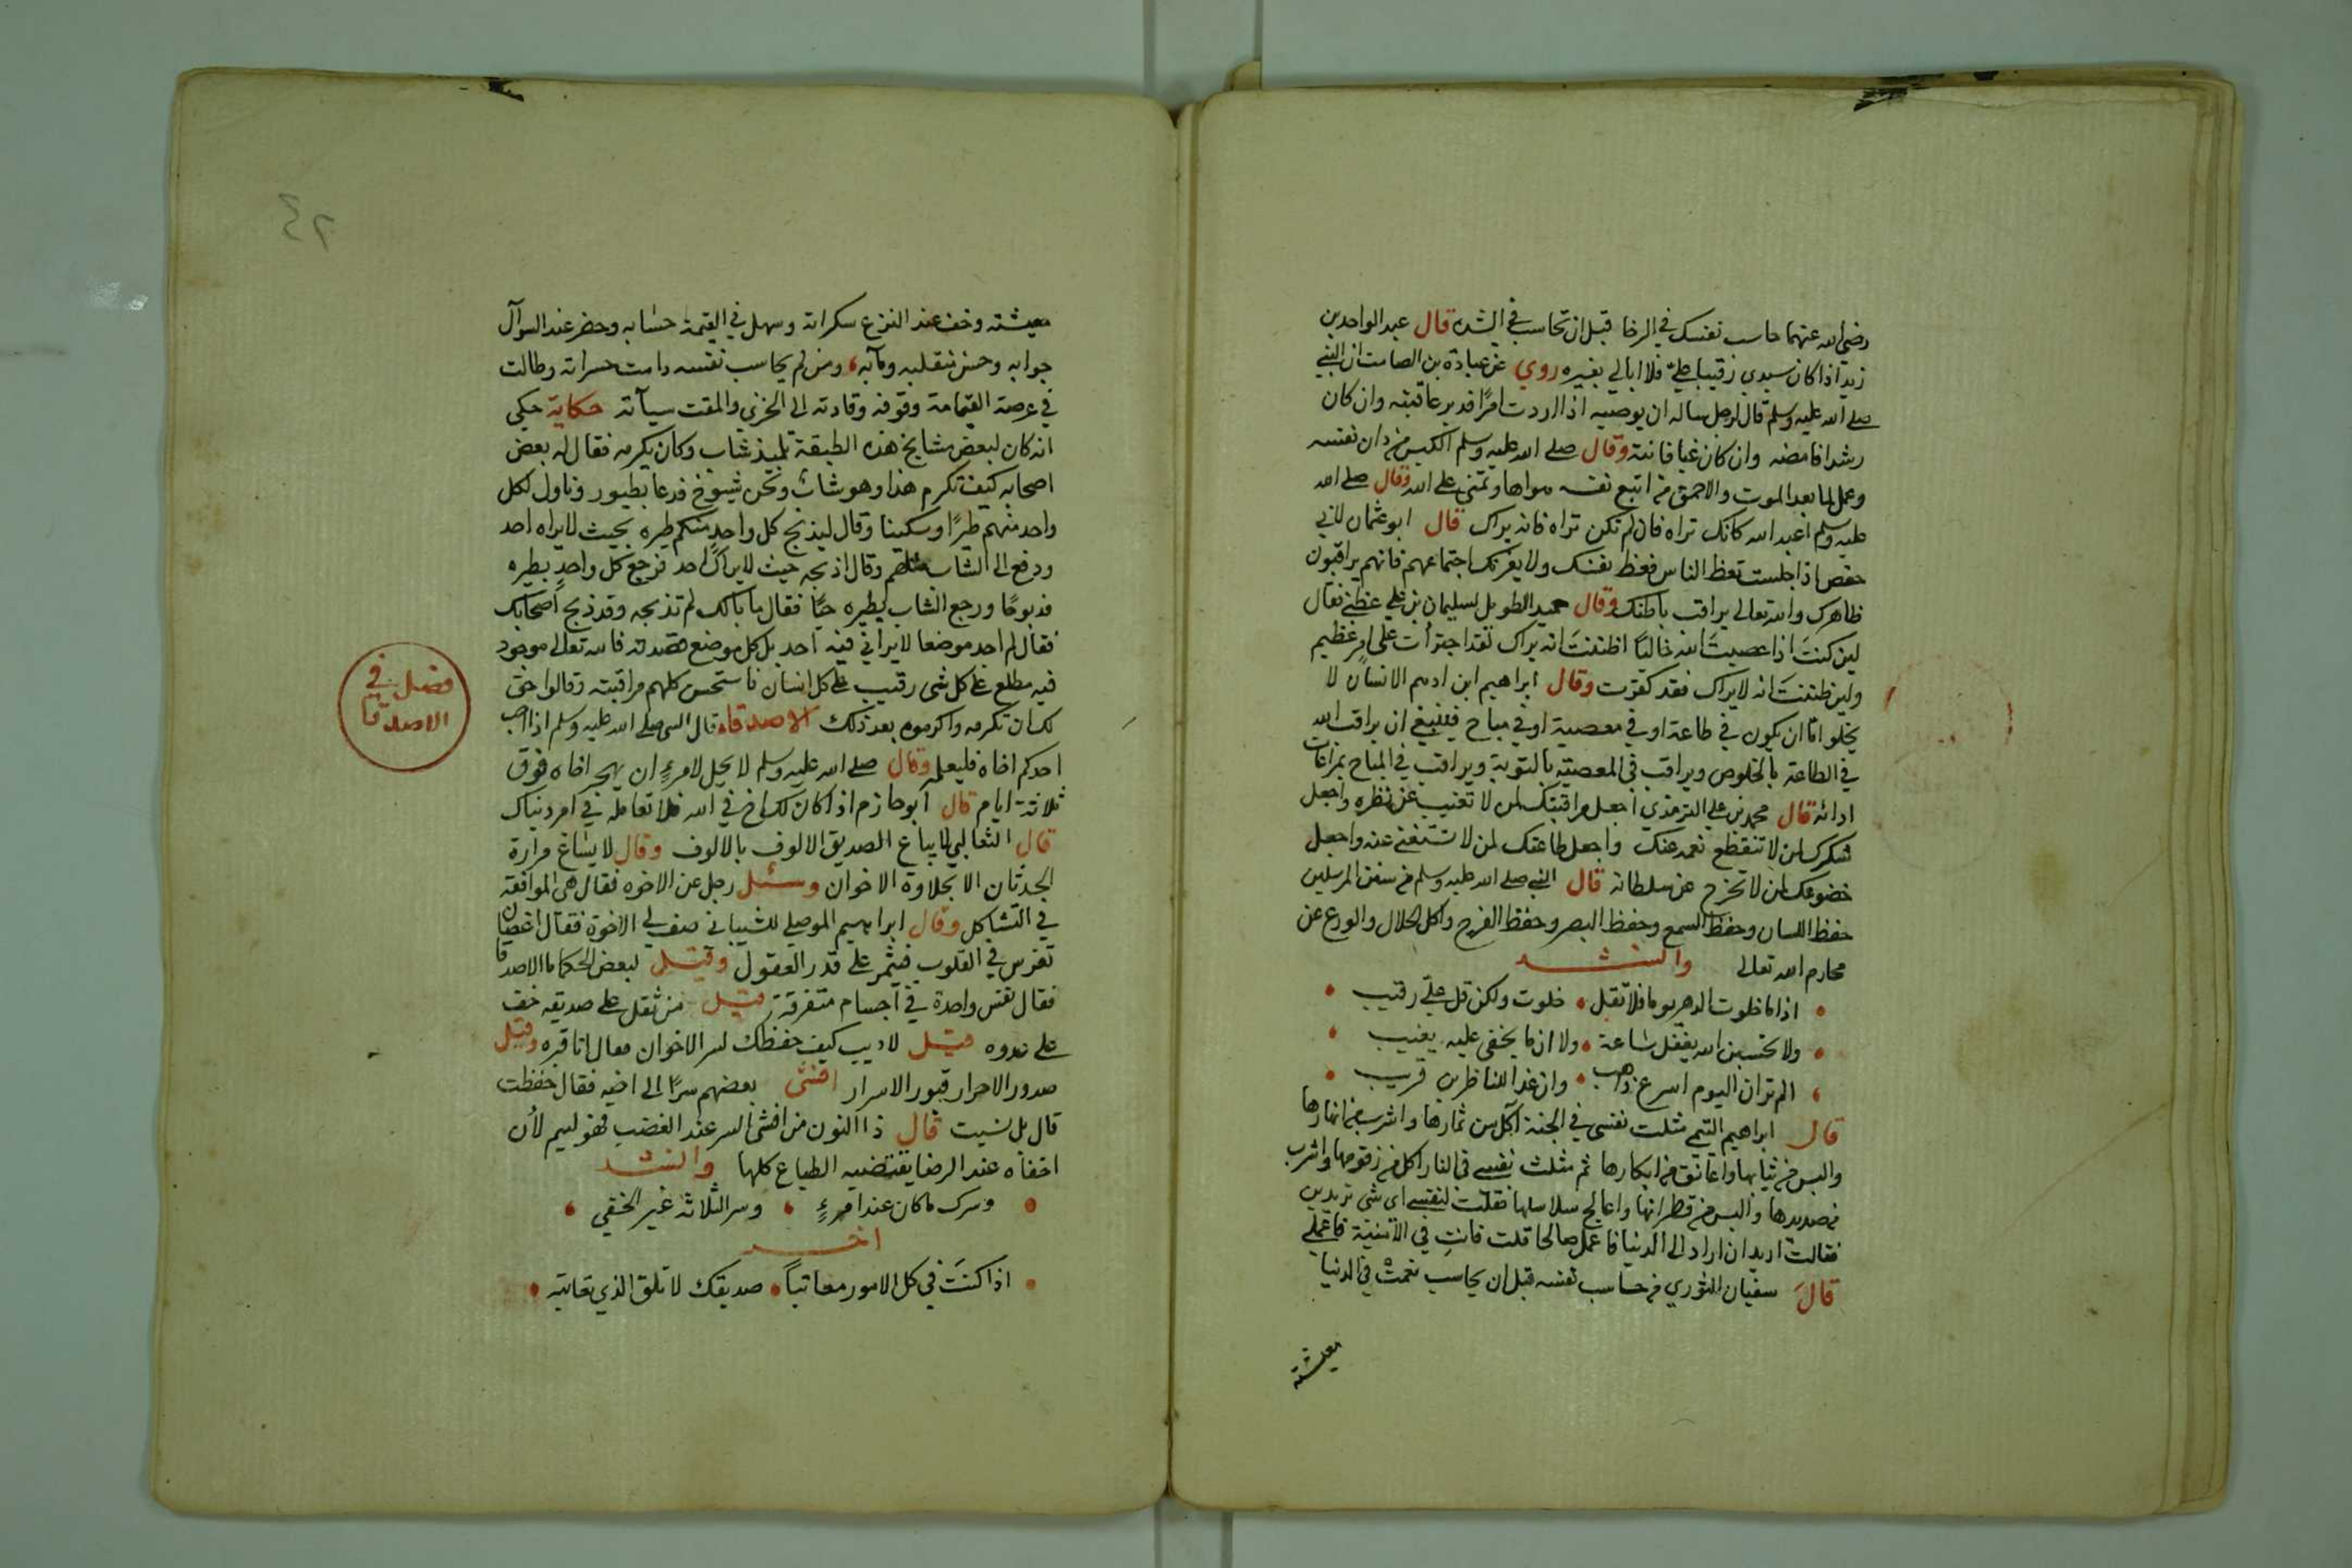 رضي الله عنهما حاسب نفسك في الرخا قبل ان تحاسب في الشدة قال عبد الواحد بن
زيد اذا كان سيدي رقيبا علي فلا ابالي بغيره روي عن عبادة بن الصامت ان النبي
صلى الله عليه وسلم قال لرجل ساله ان يوصيه اذا اردت امرًا فدبر عاقبته وان كان
رشدا فامضه وان كان غيا فانته وقال صلى الله عليه وسلم الكيس من دان نفسه
وعمل لما بعد الموت والاحمق من اتبع نفسه هواها وتمنى على الله وقال صلى الله
عليه وسلم اعبد الله كانك تراه فان لم تكن تراه فانه يراك قال ابو عثمان لابي
حفص اذا جلست تعظ الناس فعظ نفسك ولا يغرنك اجتماعهم فانهم يراقبون
ظاهرك والله تعالى يراقب باطنك وقال حميد الطويل لسليمان بن علي عظني فقال
لين كنتَ اذا عصيتَ الله خاليًا اظننتَ انه يراك لقد اجترأت على امرٍ عظيم
ولين ظننتَ انه لا يراك فقد كفرت وقال ابراهيم ابن ادهم الانسان لا
يخلو امّا ان يكون في طاعة او في معصية او في مباح فينبغي ان يراقب الله
في الطاعة بالخلوص ويراقب في المعصية بالتوبة ويراقب في المباح بمراعات
ادائه قال محمد بن علي الترمذي اجعل مراقبتك لمن لا تغيب عن نظره واجعل
شكرك لمن لا تنقطع نعمه عنك واجعل طاعتك لمن لا تستغني عنه واجعل
خضوعك لمن لا تخرج عن سلطانه قال النبي صلى الله عليه وسلم من سنن المرسلين
حفظ اللسان وحفظ السمع وحفظ البصر وحفظ الفرج واكل الحلال والورع عن
محارم الله تعالى وانشد
اذا ما خلوت الدهر يوما فلا تقل خلوت ولكن قل علي رقيب
ولا تحسبن الله يغفل ساعة ولا ان ما يخفى عليه يغيب
الم تر ان اليوم اسرع ذاهب وان غدا للناظرين قريب
قال ابراهيم التيمي مثلت نفسي في الجنة آكل من ثمارها واشرب من انهارها
والبس من ثيابها واعانق من ابكارها ثم مثلت نفسي في النار اكل من زقومها واشرب
من صديدها والبس من قطرانها واعالج سلاسلها فقلت لنفسي اي شي تريدين
فقالت اريد ان اراد الى الدنيا فاعمل صالحا قلت فانتِ في الامنية فاعملي
قالَ سفيان الثوري من حاسب نفسه قبل ان يحاسب نعمتْ في الدنيا
معيشته
٤٢
معيشته وخف عند النزع سكراته وسهل في القيمة حسابه وحضر عند السوآل
جوابه وحسن منقلبه ومآبه ومن لم يحاسب نفسه دامت حسراته وطالت
في عرصة القيامة وقوفه وقادته الى الخزي والمقت سيآته حكاية حكى
انه كان لبعض مشايخ هذه الطبقة تلميذ شاب وكان يكرمه فقال له بعض
اصحابه كيف تكرم هذا وهو شاب ونحن شيوخ فدعا بطيور وناول لكل
واحد منهم طيرًا وسكينا وقال ليذبح كل واحد منكم طيره بحيث لا يراه احد
ودفع الى الشاب وقال اذبحه حيث لا يراك احد فرجع كل واحدٍ بطيره
مذبوحًا ورجع الشاب بطيره حيًا فقال ما بالك لم تذبحه وقد ذبح أصحابك
فقال لم اجد موضعا لا يراني فيه احد بل كل موضع فالله تعالى موجود
فيه مطلع على كل شى رقيب على كل انسان فاستحسن كلهم مراقبته وقالوا حق
لك ان تكرمه واكرموه بعد ذلك الاصدقاء قال النبى صلى الله عليه وسلم اذا احب
فصل في الاصدقا
احدكم اخاه فليعلمه وقال صلى الله عليه وسلم لا يحل لامرءٍ ان يهجر اخاه فوق
ثلاثة ايام قال أبو حازم اذا كان لك اخ في الله فلا تعامله في امر دنياك
قال الثعالبي لا يباع الصديق الالوف بالالوف وقال لا يساغ مرارة
الحدثان الا بحلاوة الاخوان وسئل رجل عن الاخوه فقال هى الموافقة
في التشاكل وقال ابراهيم الموصلي للشيباني صف لي الاخوة فقال اغصان
تغرس في القلوب فيثمر على قدر العقول وقيل لبعض الحكما ما الاصدقا
فقال نفس واحدة في أجسام متفرقة قيل من ثقل على صديقه خف
على عدوه قيل لاديب كيف حفظك لسر الاخوان فقال انا قبره وقيل
صدور الاحرار قبور الاسرار افشى بعضهم سرًا الى اخيه فقال حفظت
قال بل نسيت قال ذا النون من افشى السر عند الغضب فهو لييم لأن
اخفاه عند الرضا يقتضيه الطباع كلها وانشد
وسرك ما كان عند امرءٍ وسر الثلاثة غير الخفي
اخر
اذا كنتَ في كل الامور معاتباً صديقك لا تلق الذي تعاتبه